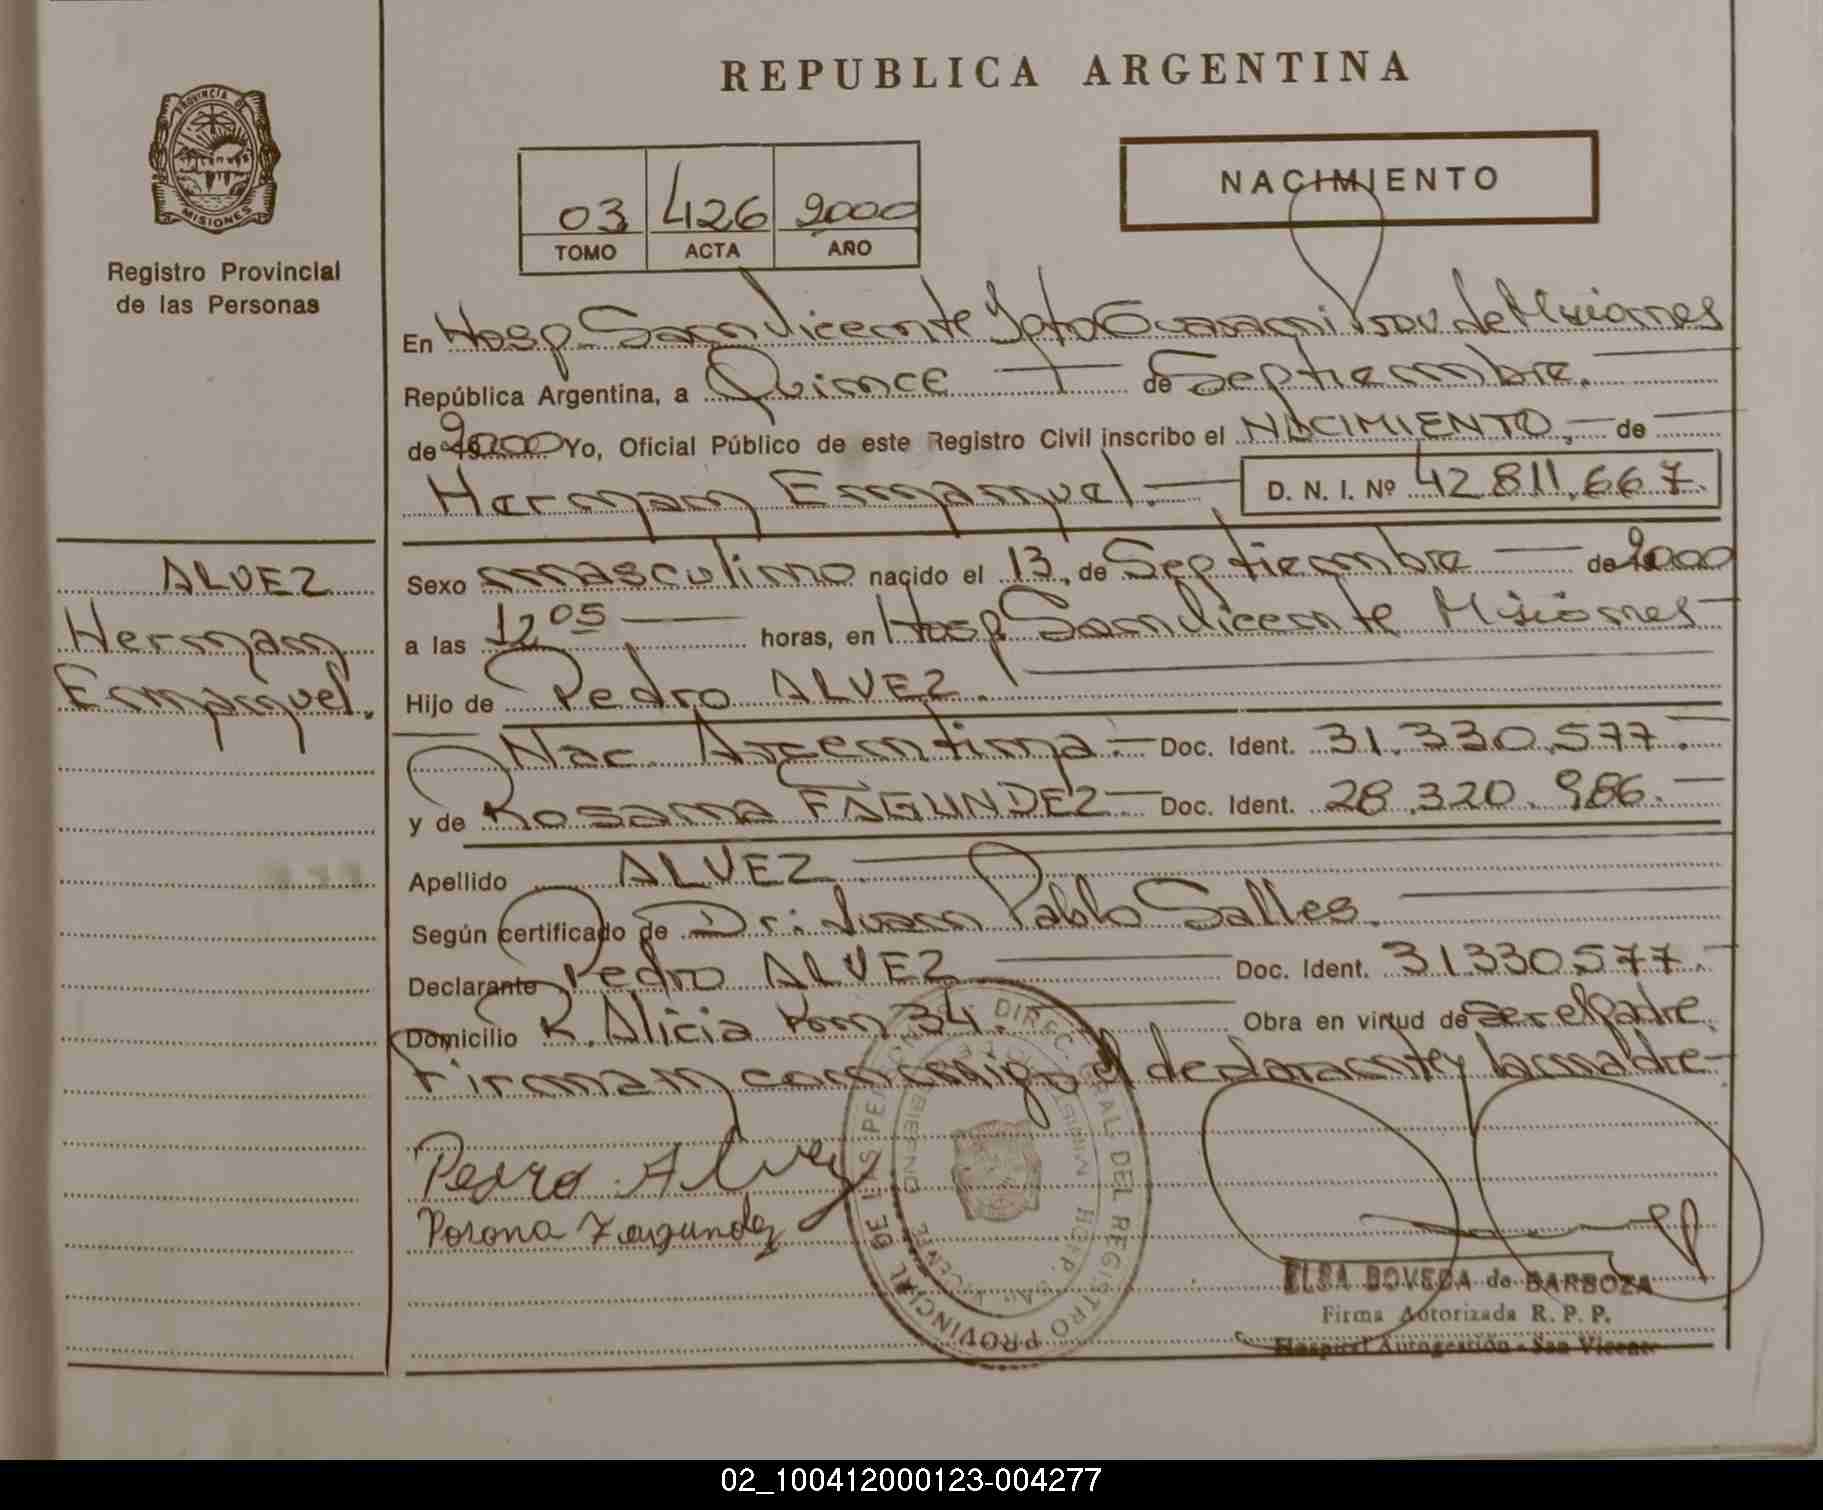 REPUBLICA ARGENTINA
PROVINCIA DE
MISIONES
Registro Provincial
de las Personas
03 426 2000
TOMO ACTA AÑO
NACIMIENTO
En Hosp. San Vicente Dpto Guarani Prov de Misiones
República Argentina, a Quince de Septiembre.
de 2000 Yo, Oficial Público de este Registro Civil inscribo el NACIMIENTO. de
Hernan Emanuel. D. N. I. Nº 42.811.667.
ALVEZ
Hernan
Emanuel.
Sexo masculino nacido el 13. de Septiembre de 2000
a las 12 05 horas, en Hosp San Vicente Misiones
Hijo de Pedro ALVEZ.
Nac. Argentina. Doc. Ident. 31.330.577.
y de Rosana FAGUNDEZ Doc. Ident. 28.320.986.
Apellido ALVEZ.
Según certificado de Dr: Juan Pablo Salles.
Declarante Pedro ALVEZ Doc. Ident. 31330577.
Domicilio R. Alicia Km 34. Obra en virtud de Ser el Padre.
Firman conmigo el declarante y la madre
Pedro Alvez
Rosana Fagundez
DIREC. GRAL. DEL REGISTRO PROVINCIAL DE LAS PERSONAS
ELSA BOVEDA de BARBOZA
Firma Autorizada R. P. P.
Hospital Autogestión - San Vicente
02_100412000123-004277